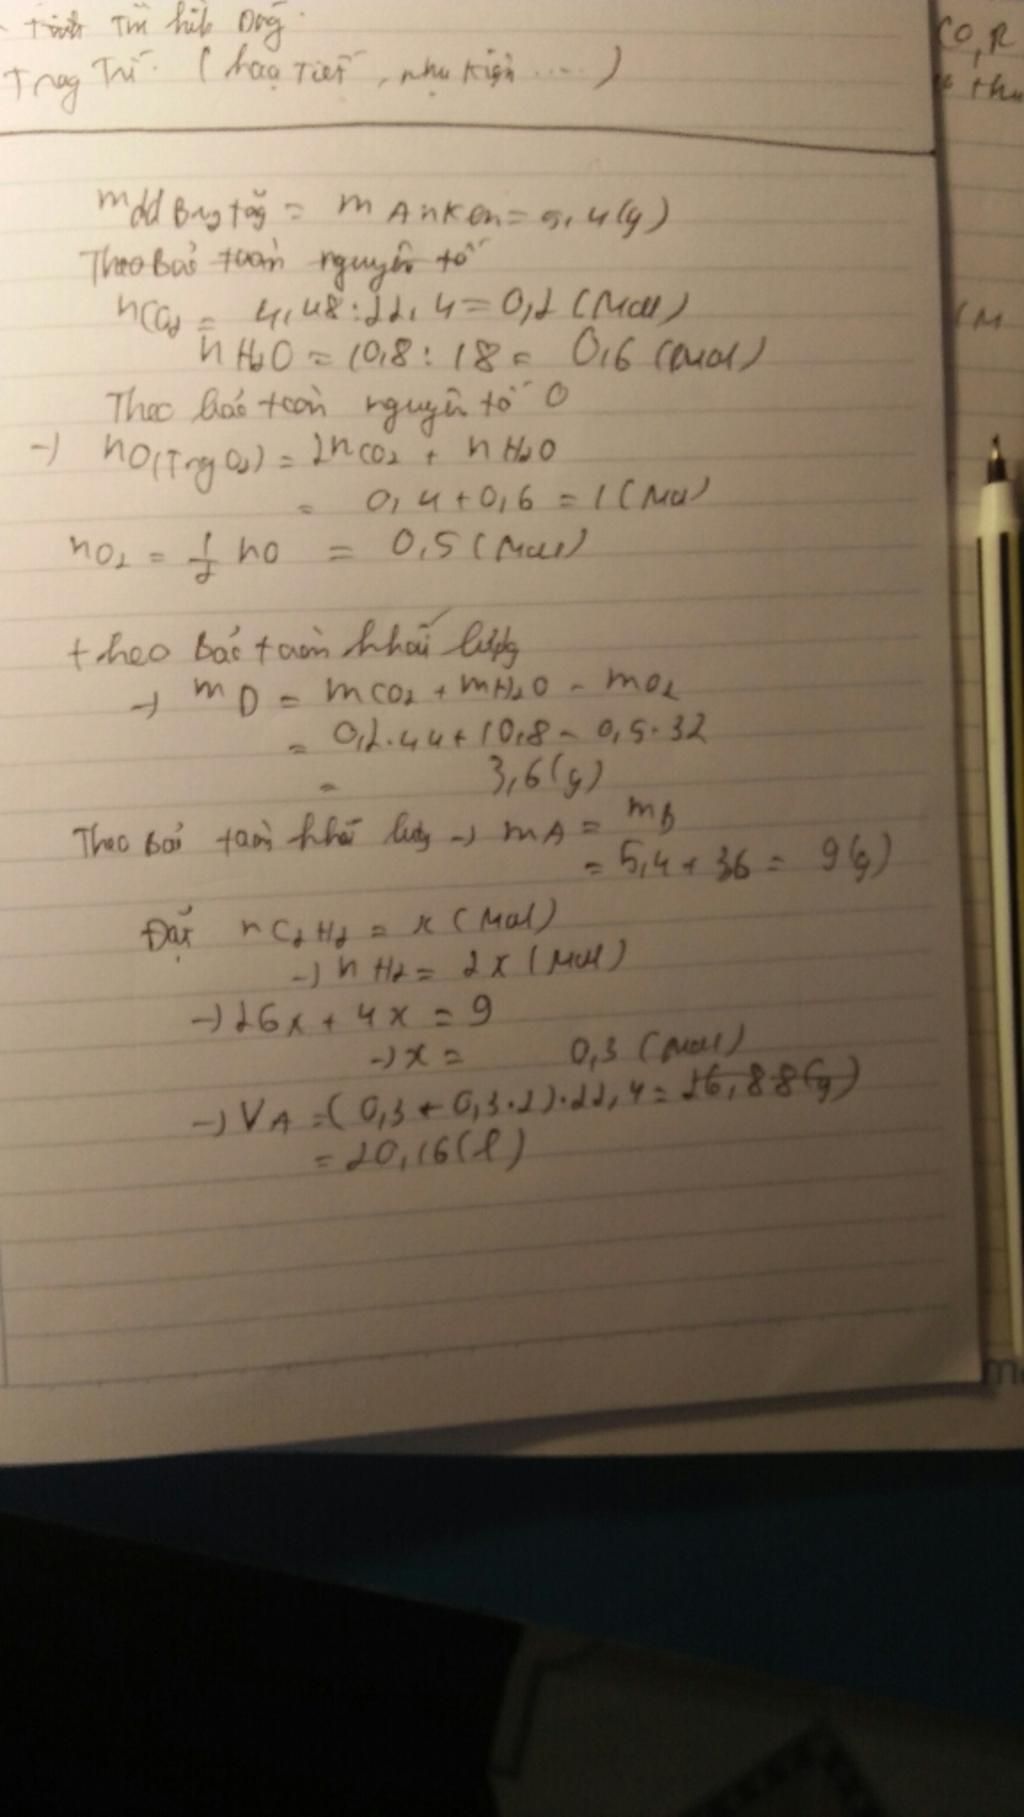 Trag Trí. (hoạ Tiết, nhụ kiện ....)
CO, R
thu
mdd Brg tăg = m Anken = 5,4(g)
Theo Bảo toàn nguyên tố
nCO2 = 4,48:22,4 = 0,2 (Mol)
nH2O = 10,8 : 18 = 0,6 (Mol)
Theo bảo toàn nguyên tố O
→ nO(Trg O2) = 2nCO2 + nH2O
= 0,4 + 0,6 = 1 (Mol)
nO2 = 1/2 nO = 0,5 (Mol)
theo Bảo toàn khối lượg
→ mD = mCO2 + mH2O - mO2
= 0,2.44 + 10,8 - 0,5.32
= 3,6(g)
Theo Bảo toàn khối lượg → mA = mB
= 5,4 + 36 = 9(g)
Đặt nC2H2 = x (Mol)
→ nH2 = 2x (Mol)
→ 26x + 4x = 9
→ x = 0,3 (Mol)
→ VA = (0,3 + 0,3.2).22,4 = 26,88(g)
= 20,16(l)